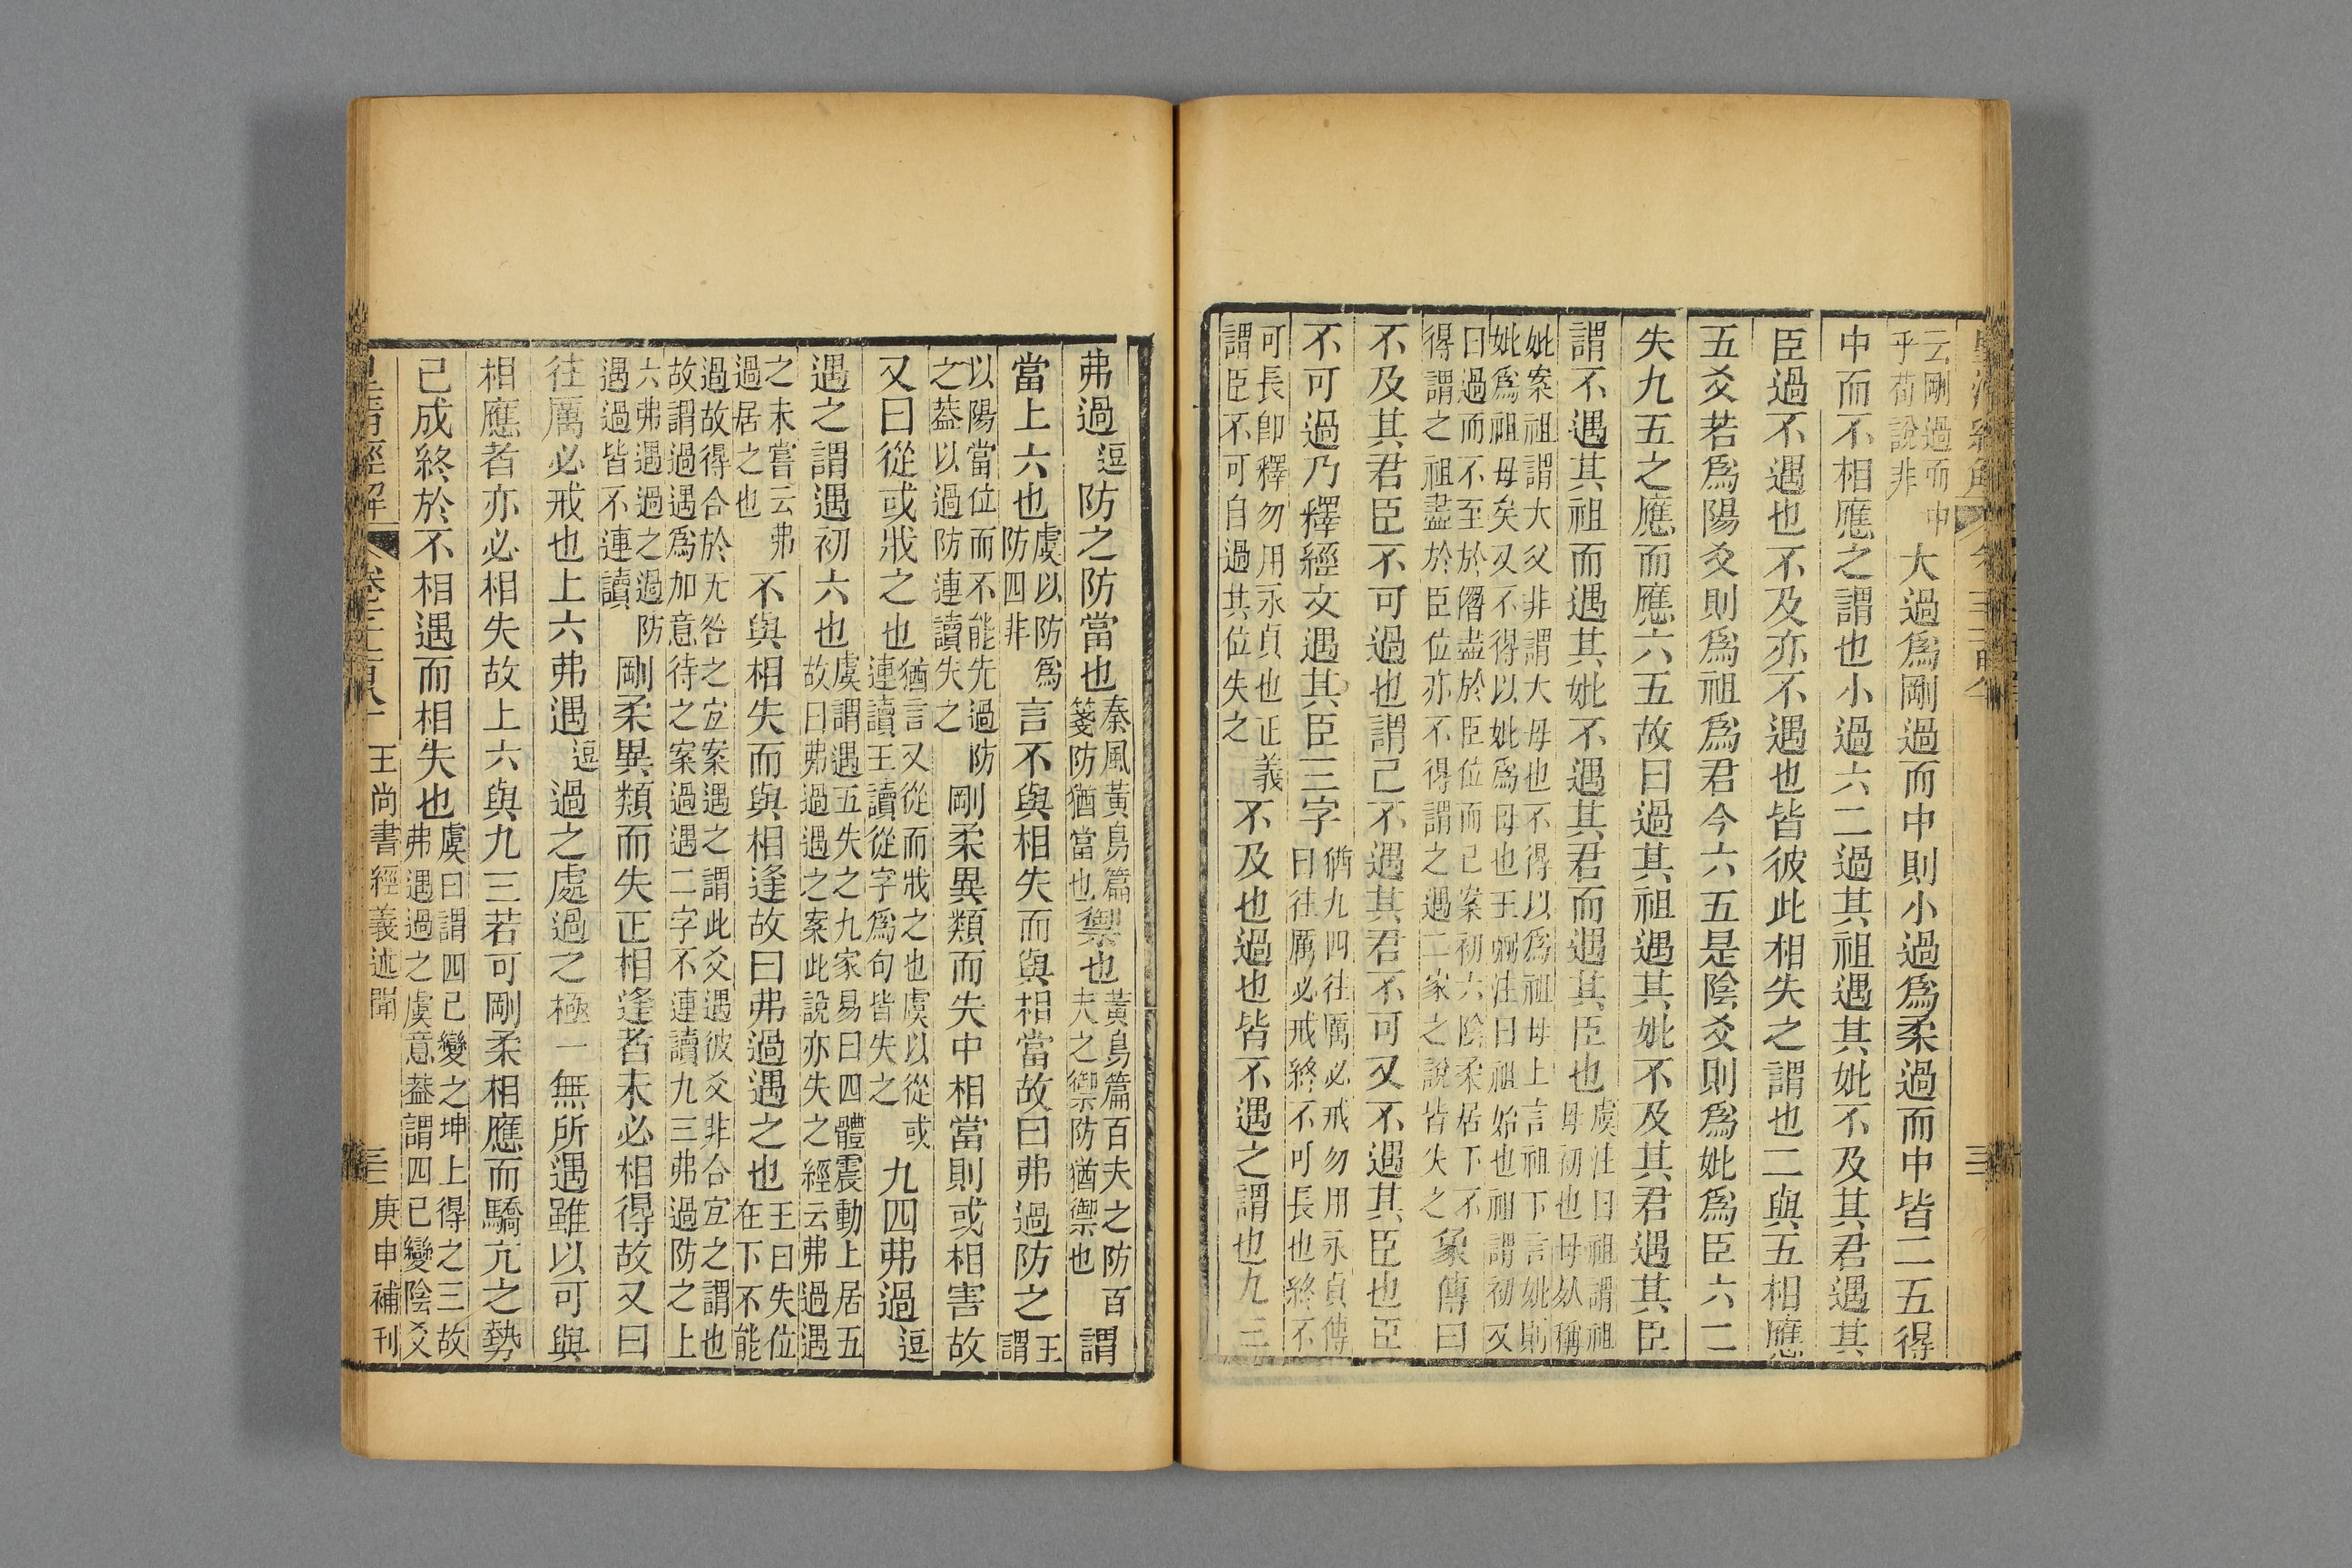 云剛過而中乎荀說非大過爲剛過而中則小過爲柔過而中皆二五得
中而不相應之謂也小過六二過其祖遇其妣不及其君遇其
臣過不遇也不及亦不遇也皆彼此相失之謂也二與五相應
五爻若爲陽爻則爲祖爲君今六五是陰爻則爲妣爲臣六二
失九五之應而應六五故曰過其祖遇其妣不及其君遇其臣
謂不遇其祖而遇其妣不遇其君而遇其臣也虞注曰祖謂祖母初也母死稱
妣案祖謂大父非謂大母也不得以爲祖母上言祖下言妣則妣爲祖母矣又不得以妣爲母也王弼注曰祖始也祖謂初又
曰過而不至於僭盡於臣位而已案初六陰柔居下不得謂之祖盡於臣位亦不得謂之遇二家之說皆失之象傳曰
不及其君臣不可過也謂己不遇其君不可又不遇其臣也臣
不可過乃釋經文遇其臣三字猶九四往厲必戒勿用永貞傳曰往厲必戒終不可長也終不
可長卽釋勿用永貞也正義謂臣不可自過其位失之不及也過也皆不遇之謂也九三
弗過逗防之防當也秦風黃鳥篇箋防猶當也禦也黃鳥篇百夫之防百夫之禦防猶禦也謂
當上六也虞以防爲防四非言不與相失而與相當故曰弗過防之王謂
以陽當位而不能先過防之葢以過防連讀失之剛柔異類而失中相當則或相害故
又曰從或戕之也猶言又從而戕之也虞以從或連讀王讀從字爲句皆失之九四弗過逗
遇之謂遇初六也虞謂遇五失之九家易曰四體震動上居五故曰弗過遇之案此說亦失之經云弗過遇
之未嘗云弗過居之也不與相失而與相逢故曰弗過遇之也王曰失位在下不能
過故得合於无咎之宜案遇之謂此爻遇彼爻非合宜之謂也故謂過遇爲加意待之案過遇二字不連讀九三弗過防之上
六弗遇過之過防遇過皆不連讀剛柔異類而失正相逢者未必相得故又曰
往厲必戒也上六弗遇逗過之處過之極一無所遇雖以可與
相應者亦必相失故上六與九三若可剛柔相應而驕亢之勢
已成終於不相遇而相失也虞曰謂四已變之坤上得之三故弗遇過之虞意葢謂四已變陰爻
皇清經解 王尚書經義述聞 三 庚申補刊